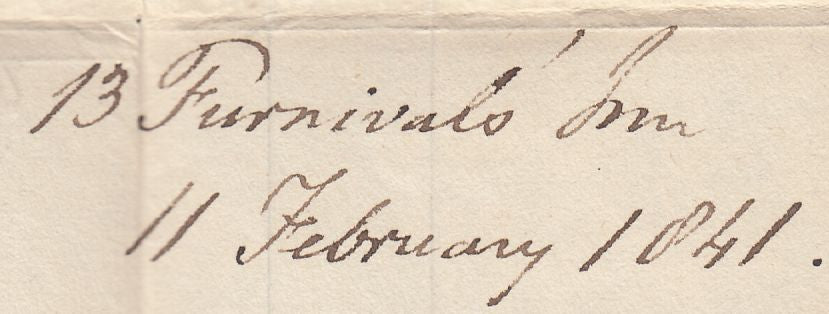 13 Furnivals' Inn
11 February 1841.